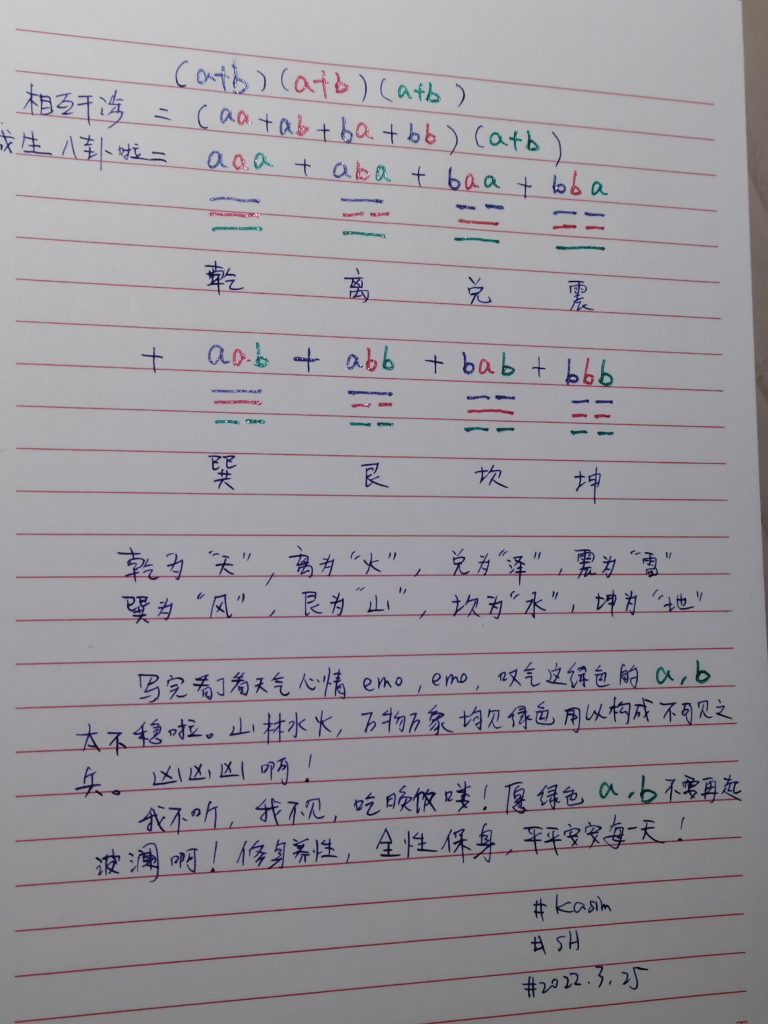 (a+b)(a+b)(a+b)
相互干涉 = (aa+ab+ba+bb)(a+b)
成生八卦啦= aaa + aba + baa + bba
乾 离 兑 震
+ aab + abb + bab + bbb
巽 艮 坎 坤
乾为“天”,离为“火”,兑为“泽”,震为“雷”
巽为“风”,艮为“山”,坎为“水”,坤为“地”
写完看了看天气心情emo,emo,叹气这绿色的a,b
太不稳啦。山林水火,万物万象均见绿色用以构成不可见之
兵。凶凶凶啊!
我不听,我不见,吃晚饭喽!愿绿色a,b不要再起
波澜啊!修身养性,全性保身,平平安安每一天!
#Kasim
#SH
#2022.3.25